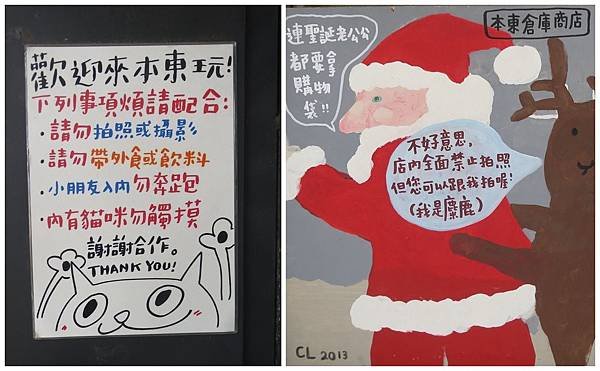 歡迎來本東玩!
下列事項煩請配合:
·請勿拍照或攝影
·請勿帶外食或飲料
·小朋友入內勿奔跑
·內有貓咪勿觸摸
謝謝合作。
THANK YOU!
本東倉庫商店
連聖誕老公公
都要拿
購物
袋!!
不好意思,
店內全面禁止拍照
但您可以跟我拍喔!
(我是麋鹿)
CL 2013